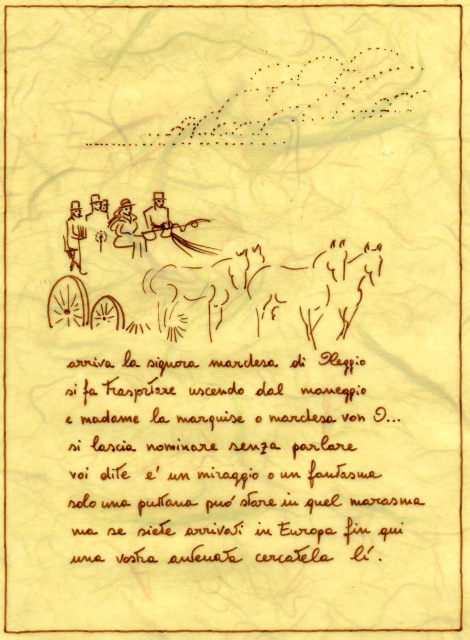 arriva la signora marchesa di Reggio
si fa trasportare uscendo dal maneggio
e madame la marquise o marchesa von O...
si lascia nominare senza parlare
voi dite e' un miraggio o un fantasma
solo una puttana può stare in quel marasma
ma se siete arrivati in Europa fin qui
una vostra antenata cercatela lí.